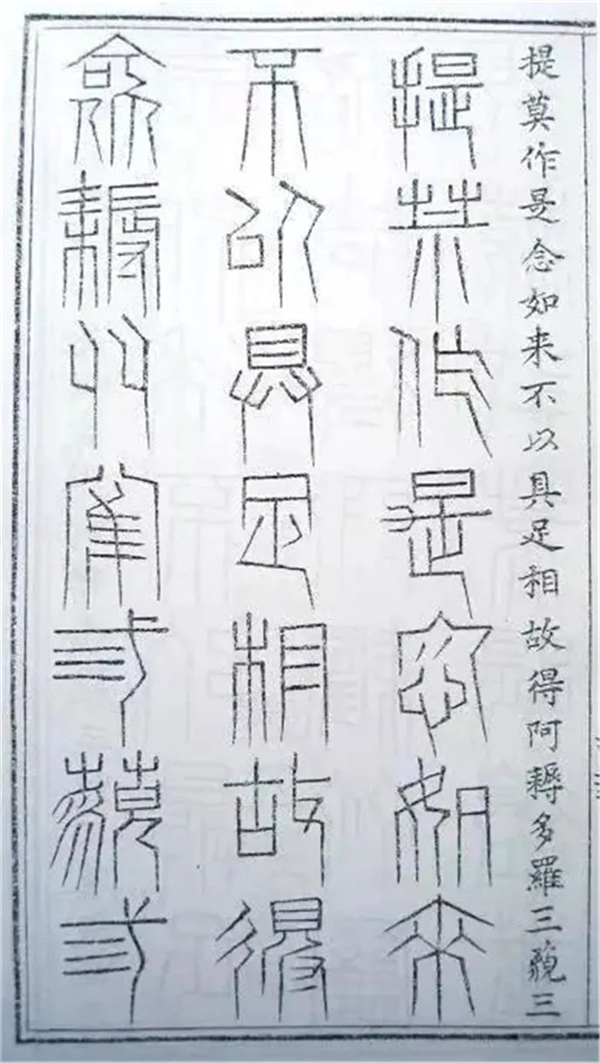 提莫作是念如来不以具足相故得阿耨多羅三藐三
提莫作是念如來
不以具足相故得
阿耨多羅弎藐弎